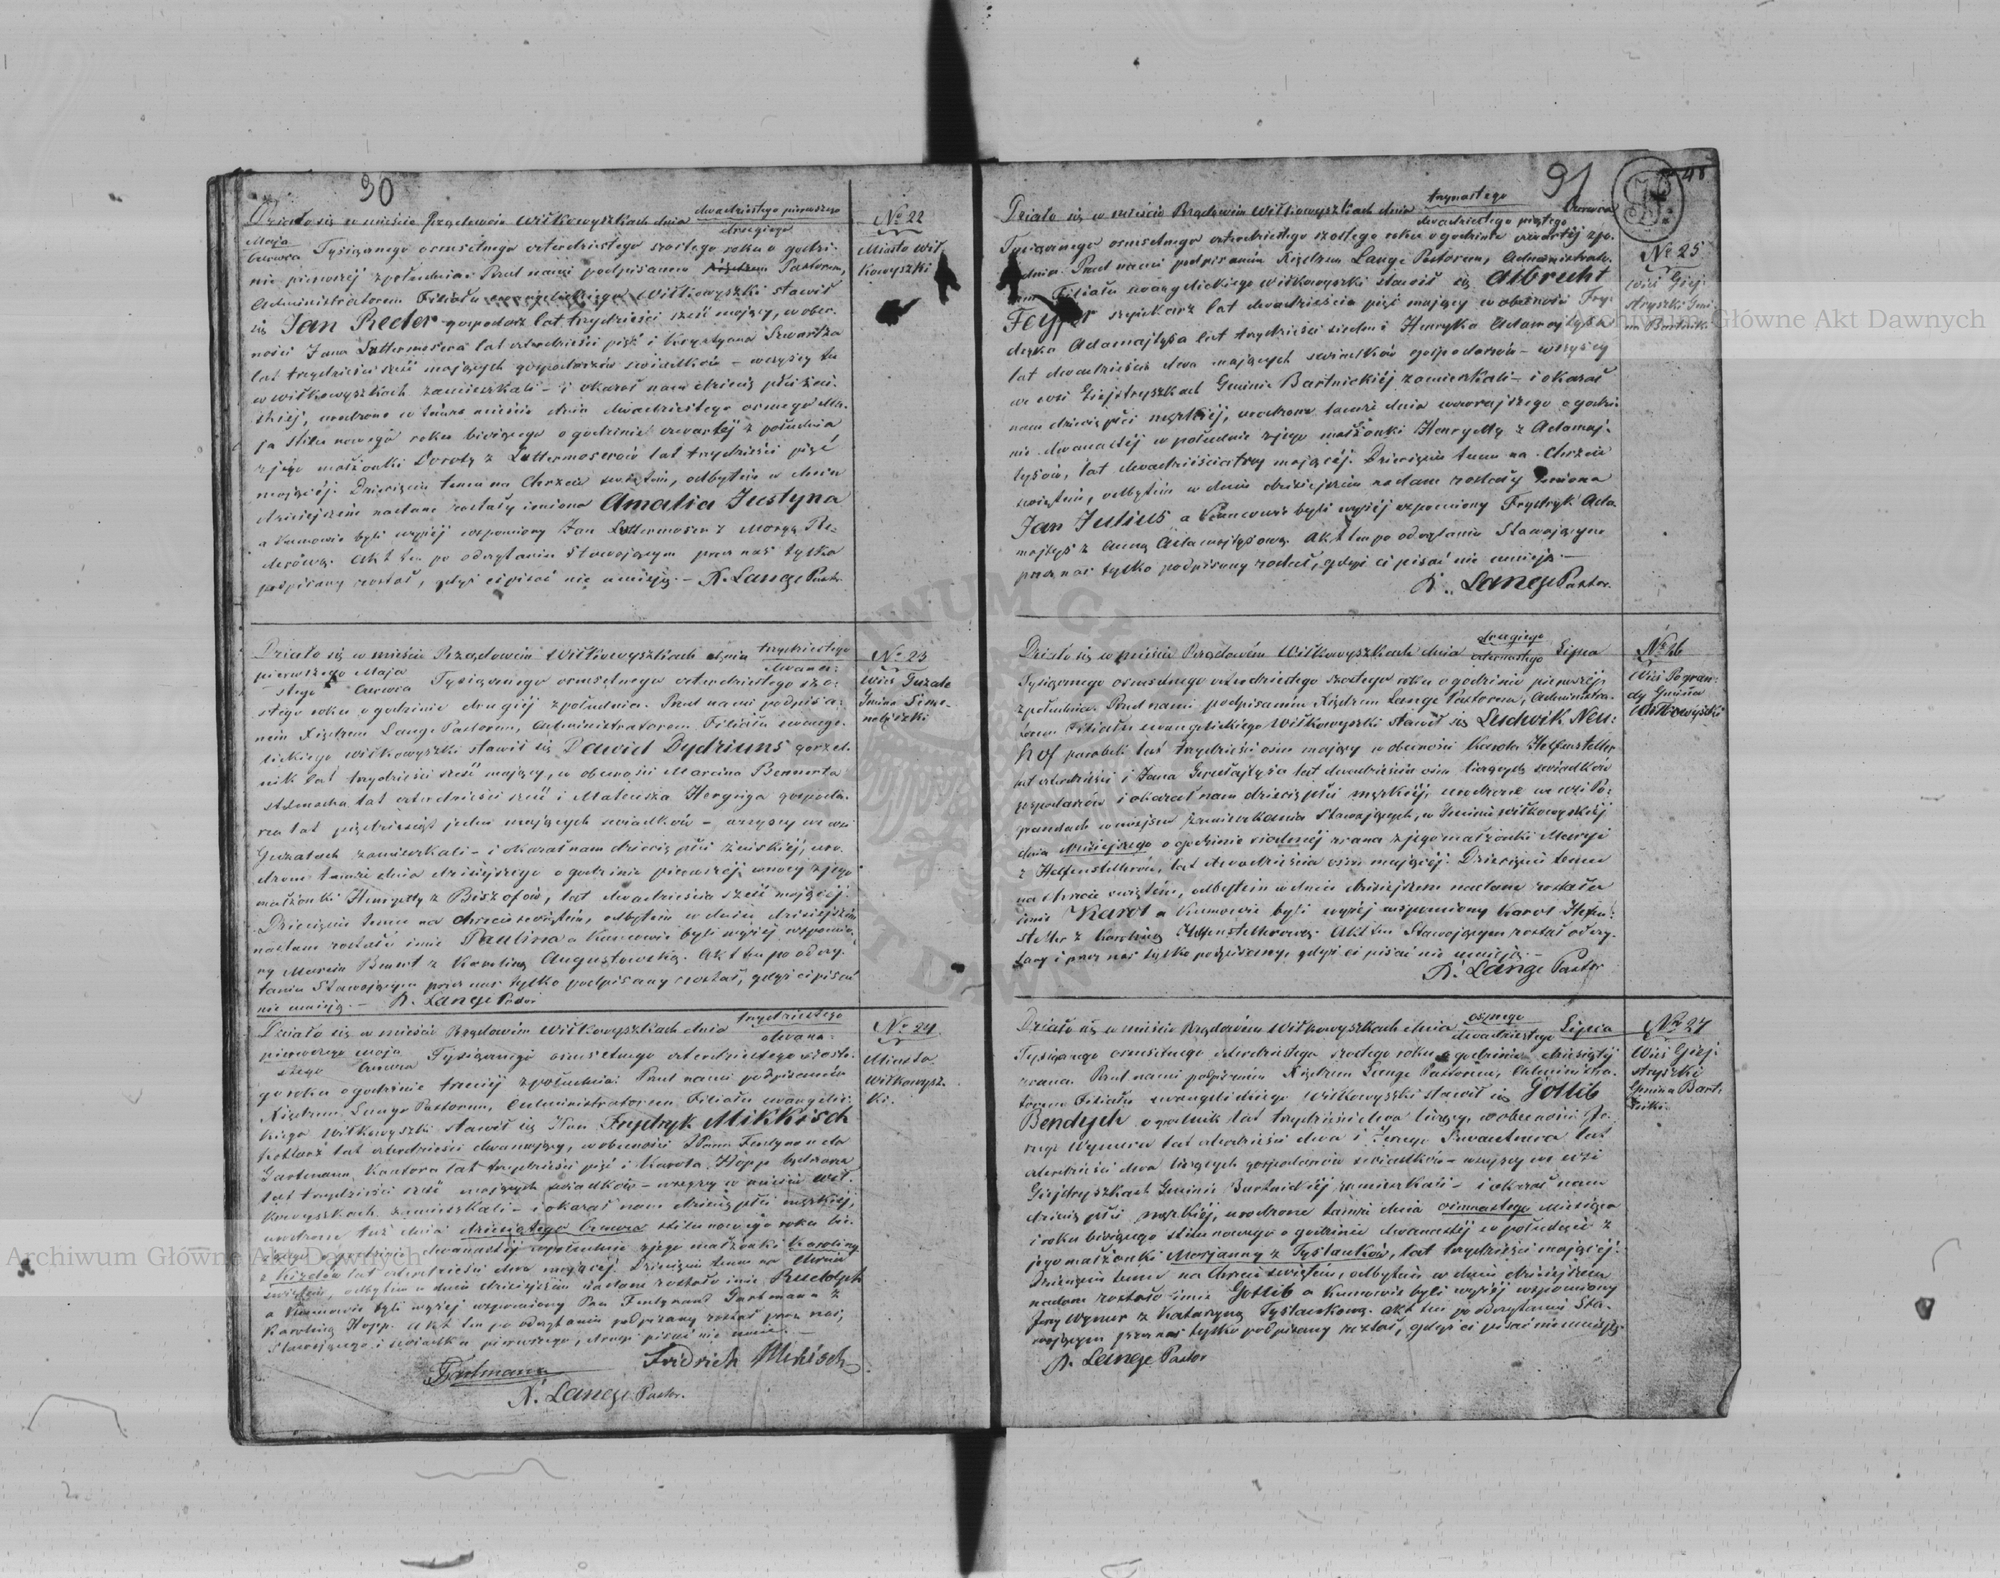 90
Działo się w mieście Rządowém Wiłkowyszkach dnia dwudziestego pierwszego Maja
drugiego Czerwca Tysiącznego osmsetnego czterdziestego szostego roku o godzi-
nie pierwszej z południa. Przed nami podpisanem Pastorem,
Administratorem Filiału ewangelickiego Wiłkowyszki stawił
się Jan Reder gospodarz lat trzydzieści sześć mający, w obec-
ności Jana Luttermosera lat czterdzieści pięć i Krystyana Szwartza
lat trzydzieści sześć mających gospodarzów świadków – wszyscy tu
w Wiłkowyszkach zamieszkali – i okazał nam dziecię płci żeń-
skiéj, urodzone w témże mieście dnia dwudziestego osmego Ma-
ja stilu nowego roku bieżącego o godzinie czwartéj z południa
z jego małżonki Doroty z Luttermoserów lat trzydzieści pięć
mającéj. Dziecięciu temu na Chrzcie świętem, odbytém w dniu
dzisiejszém nadane zostały imiona Amalia Justyna
a Kumowie byli wyżéj wspomniony Jan Luttermoser z Maryą Re-
derówą. Akt ten po odczytaniu stawającym przez nas tylko
podpisany został, gdyż ci pisać nie umieją. – A. Lange Pastor.
No 22
Miasto Wił-
kowyszki
Działo się w mieście Rządowém Wiłkowyszkach dnia trzydziestego
pierwszego Maja dwuna-
stego Czerwca Tysiącznego osmsetnego czterdziestego szo-
stego roku o godzinie drugiéj z południa. Przed nami podpisa-
nem Xiędzem Lange Pastorem, Administratorem Filiału ewange-
lickiego Wiłkowyszki stawił się Dawid Dydriuns gorzel-
nik lat trzydzieści sześć mający, w obecności Marcina Bennerta
stelmacha lat czterdzieści sześć i Mateusza gospoda-
rza lat pięćdziesiąt jeden mających świadków – wszyscy we wsi
Guzatach zamieszkali – i okazał nam dziecię płci żeńskiéj, uro-
dzone tamże dnia dzisiéjszego o godzinie pierwszéj w nocy z jego
małżonki Henryetty z Biszofów, lat dwadzieścia sześć mającéj.
Dziecięciu temu na Chrzcie świętém, odbytém w dniu dzisiejszém
nadane zostało imie Paulina a Kumowie byli wyżéj wspomnio-
ny Marcin Benert z Karoliną Augustowską. Akt ten po odczy-
taniu Stawającym przez nas tylko podpisany został, gdyż ci pisać
nie umieją. – A. Lange Pastor
No 23
Wieś Guzate
Gmina Sime-
naliszki
Działo się w mieście Rządowém Wiłkowyszkach dnia trzydziestego
pierwszego Maja dwuna-
stego Czerwca Tysiącznego osmsetnego czterdziestego szoste-
go roku o godzinie trzeciéj z południa. Przed nami podpisaném
Xiędzem Lange Pastorem, Administratorem Filiału ewangelic-
kiego Wiłkowyszki stawił się Pan Frydryk Mikkisch
kotlarz lat czterdzieści dwa mający, w obecności Pana Ferdynanda
Gartmann Kantora lat trzydzieści pięć i Karola Hopp
lat trzydzieści sześć mających świadków – wszyscy w mieście Wił-
kowyszkach zamieszkali – i okazał nam dziecię płci męzkiéj,
urodzone tuż dnia dziesiątego Czerwca stilu nowego roku bie-
żącego o godzinie dwunastéj w południe z jego małżonki Karoliny
z lat czterdzieści dwa mającéj. Dziecięciu temu na Chrzcie
świętém, odbytém w dniu dzisiejszém nadane zostało imie Rudolph
a Kumowie byli wyżéj wspomniony Pan Ferdynand Gartmann z
Karoliną Hopp. Akt ten po odczytaniu podpisany został przez nas,
Stawającego i świadka pierwszego, drugi pisać nie umie. –
Gartmann Fridrich Mikisch
A. Lange Pastor.
No 24
Miasto
Wiłkowysz-
ki.
91
48
Działo się w mieście Rządowém Wiłkowyszkach dnia trzynastego
dwudziestego piątego Czerwca
Tysiącznego osmsetnego czterdziestego szostego roku o godzinie czwartéj z po-
łudnia. Przed nami podpisaném Xiędzem Lange Pastorem, Administrato-
rem Filiału ewangelickiego Wiłkowyszki stawił się Albrecht
Feyfer szpickarz lat dwadzieścia pięć mający w obecności Fry-
dryka Adamajtysa lat trzydzieści siedm i Henryka Adamajtysa
lat dwadzieścia dwa mających świadków gospodarzów – wszyscy
we wsi Giejstryszkach Gminie Bartnickiéj zamieszkali – i okazał
nam dziecię płci męzkiéj, urodzone tamże dnia wczorajszego o godzi-
nie dwunastéj w południe z jego małżonki Henryetty z Adamaj-
tysów, lat dwadzieścia trzy mającéj. Dziecięciu temu na Chrzcie
świętém, odbytém w dniu dzisiejszém nadane zostały imiona
Jan Julius a Kumowie byli wyżéj wspomniony Frydryk Ada-
majtys z Anną Adamajtysową. Akt ten po odczytaniu Stawającym
przez nas tylko podpisany został, gdyż ci pisać nie umieją. –
A. Lange Pastor.
No 25
Wieś Giej-
stryszki Gmi-
na Bartnik
Działo się w mieście Rządowém Wiłkowyszkach dnia drugiego
czternastego Lipca
Tysiącznego osmsetnego czterdziestego szostego roku o godzinie pierwszéj
z południa. Przed nami podpisaném Xiędzem Lange Pastorem, Administra-
torem Filiału ewangelickiego Wiłkowyszki stawił się Ludwik Neu-
hof parobek lat trzydzieści osm mający w obecności Karola Helfensteller
lat czterdzieści i Jana lat dwadzieścia osm liczących świadków
gospodarzów i okazał nam dziecię płci męzkiéj, urodzone we wsi Po-
grandach w miejscu zamieszkania Stawających, w Gminie Wiłkowyskiéj
dnia dzisiejszego o godzinie siódméj zrana z jego małżonki Maryi
z Helfenstellerów, lat dwadzieścia osm mającéj. Dziecięciu temu
na Chrzcie świętém, odbytém w dniu dzisiejszém nadane zostało
imie Karol a Kumowie byli wyżéj wspomniony Karol Helfen-
steller z Karoliną Helfenstellerową. Akt ten Stawającym został odczy-
tany i przez nas tylko podpisany, gdyż ci pisać nie umieją. –
A. Lange Pastor
No 26
Wieś Pogran-
dy Gmina
Wiłkowyszki
Działo się w mieście Rządowém Wiłkowyszkach dnia osmego
dwudziestego Lipca
Tysiącznego osmsetnego czterdziestego szostego roku o godzinie dziesiątéj
zrana. Przed nami podpisaném Xiędzem Lange Pastorem, Administra-
torem Filiału ewangelickiego Wiłkowyszki stawił się Gotlib
Bendzych ogrodnik lat trzydzieści dwa liczący, w obecności Je-
rzego Wynera lat czterdzieści dwa i Jerzego lat
czterdzieści dwa liczących gospodarzów świadków – wszyscy we wsi
Giejstryszkach Gminie Bartnickiéj zamieszkali – i okazał nam
dziecię płci męzkiéj, urodzone tamże dnia osimnastego miesiąca
i roku bieżącego stilu nowego o godzinie dwunastéj w południe z
jego małżonki Maryanny z Tyslauków, lat trzydzieści mającéj.
Dziecięciu temu na Chrzcie świętém, odbytém w dniu dzisiejszém
nadane zostało imie Gotlib a Kumowie byli wyżéj wspomniony
Jerzy Wyner z Katarzyną Tyslaukową. Akt ten po odczytaniu Sta-
wającym przez nas tylko podpisany został, gdyż ci pisać nie umieją.
A. Lange Pastor
No 27
Wieś Giej-
stryszki
Gmina Bart-
niki
Archiwum Główne Akt Dawnych
Archiwum Główne Akt Dawnych